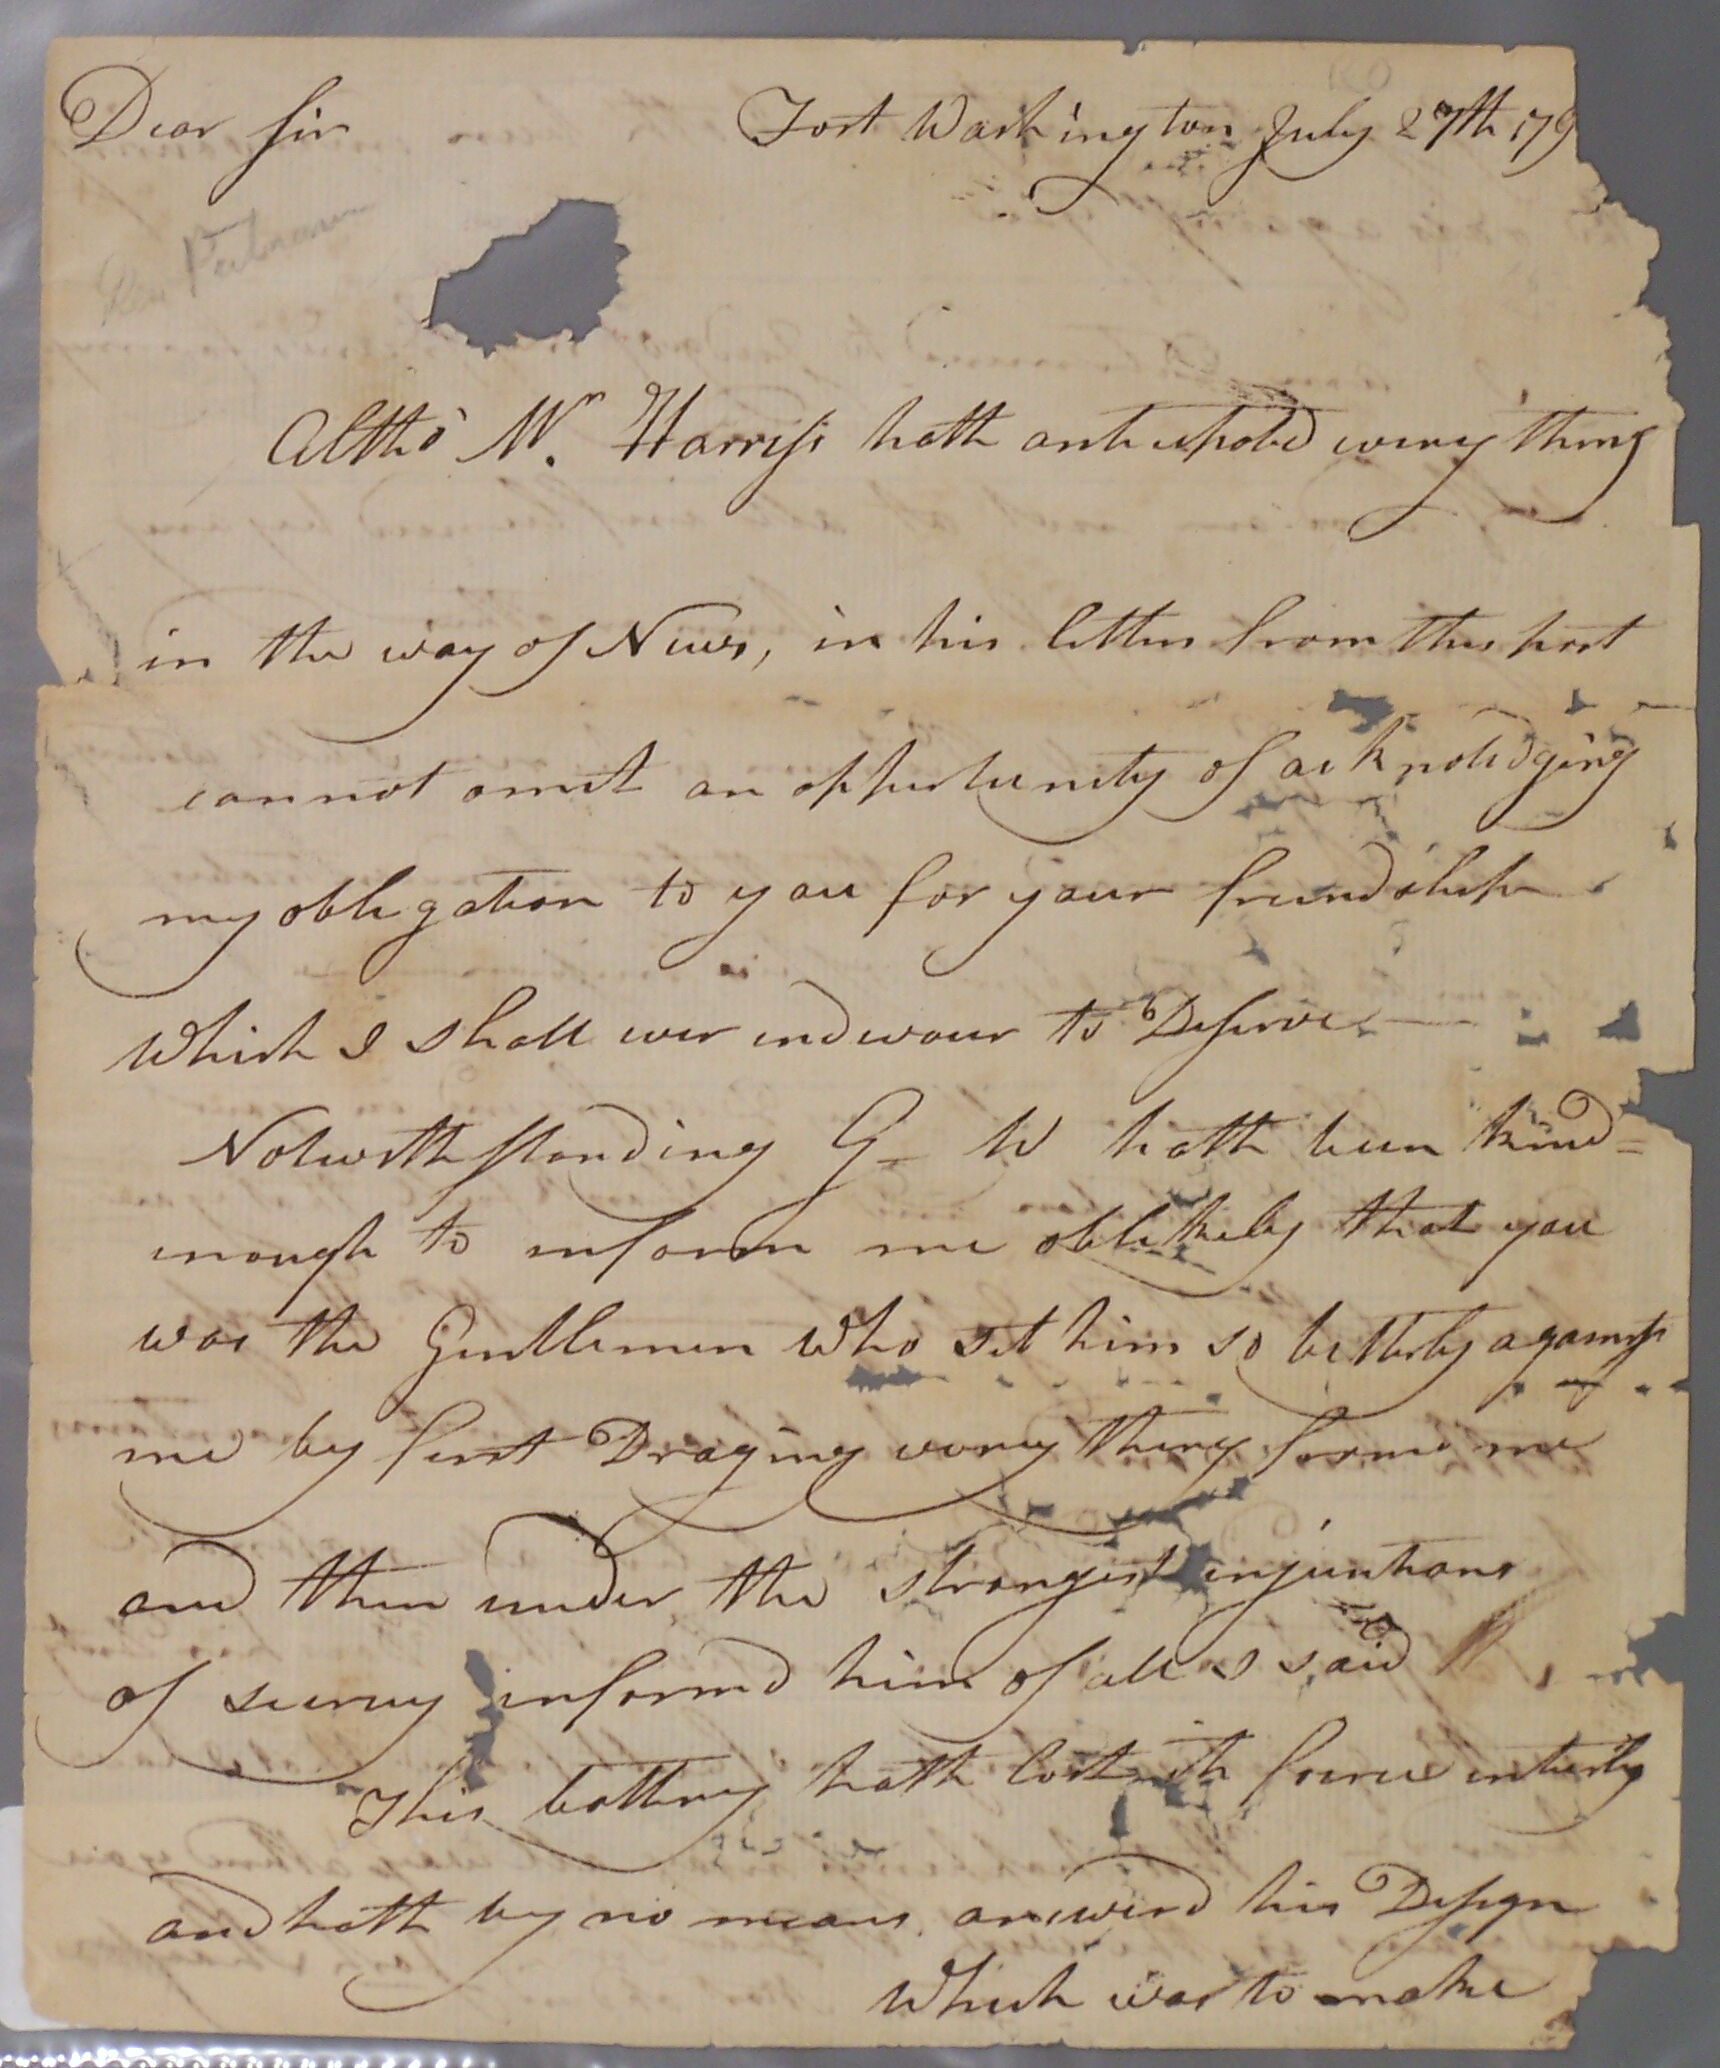 Dear Sir Fort Washington July 27th 179
Gen Putnam
Altho' Mr. Harriss hath anticipated every thing
in the way of News, in his letters from this post
cannot omit an oppertunity of acknoledging
my obligation to you for your friendship
Which I shall ever endevour to Deserve —
Notwithstanding G– W hath been kind=
enough to inform me oblikely that you
was the Gentlemen who set him so bitterly against
me by first Draging every thing forme me
and then under the strongest injunctions
of secrecy informd him of all I said
This battery hath lost its force entierly
and hath by no means answerd his Design
Which was to make